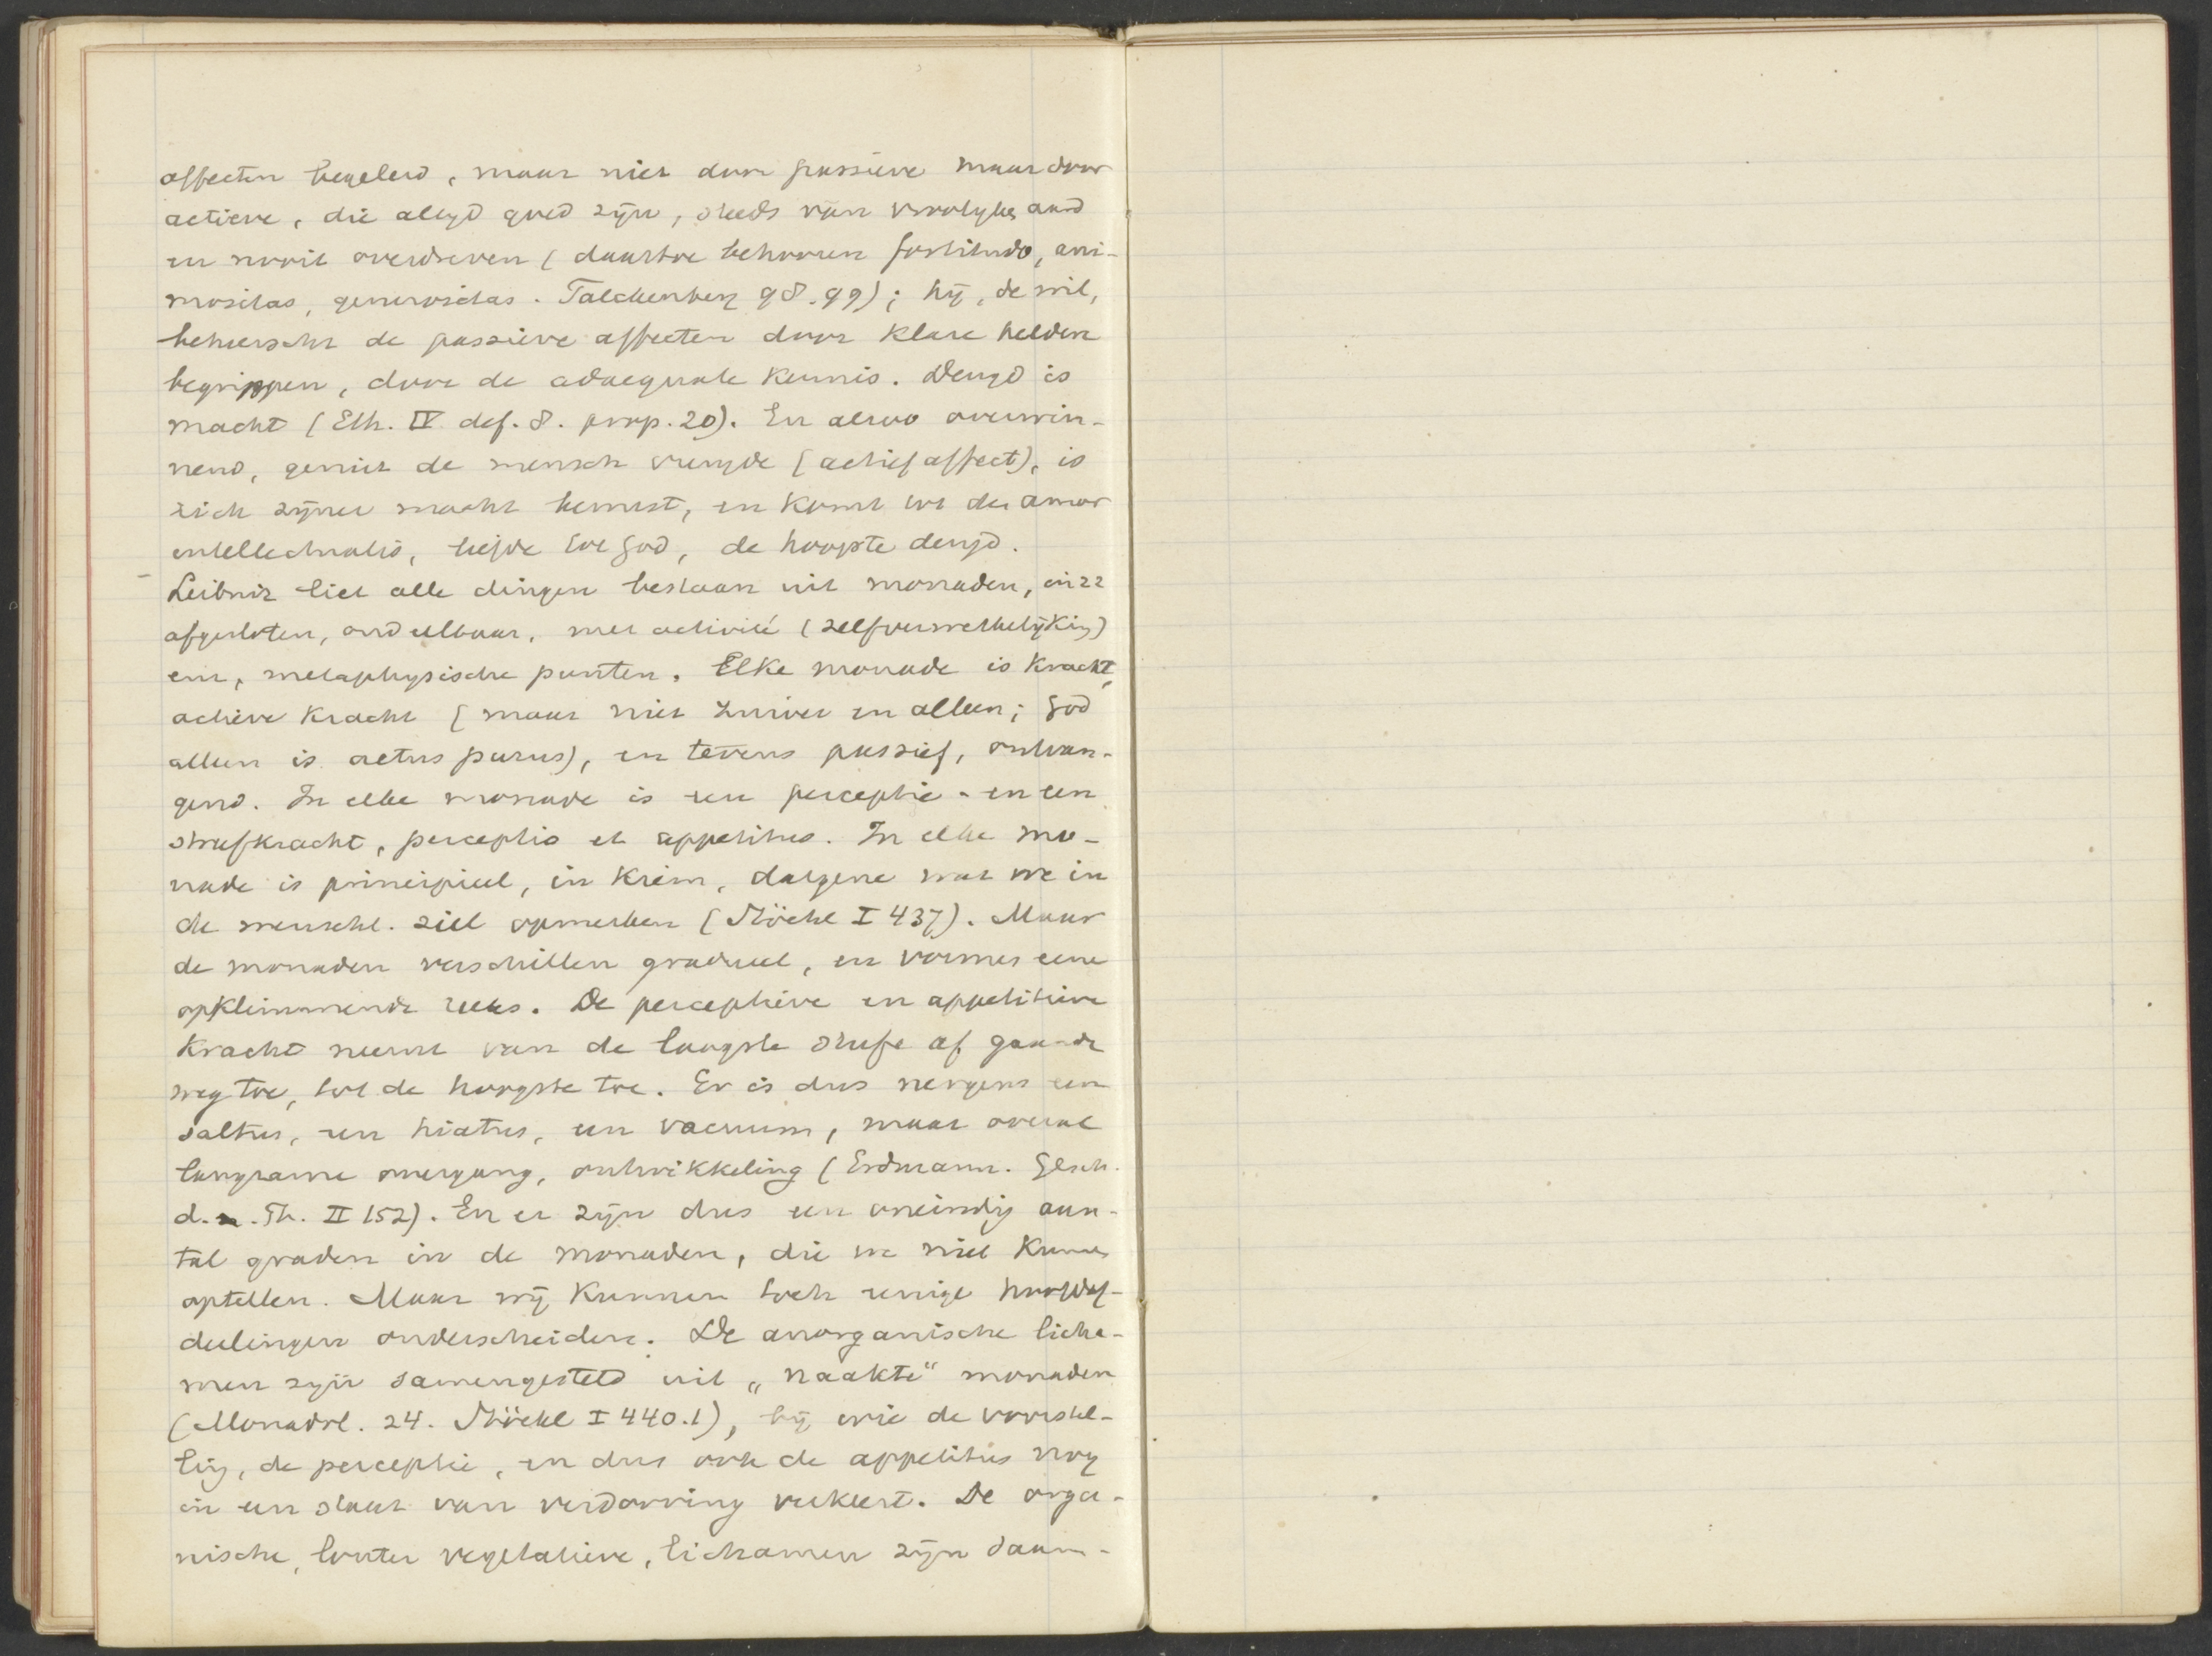 affecten begeleid, maar niet door passieve maar door
actieve, die altyd goed zijn, steeds van vroolyken aard
en nooit overdreven (daartoe behooren fortitudo, ani-
mositas, generositas. Falckenberg 98.99); hij, de wil,
beheerscht de passieve affecten door klare heldere
begrippen, door de adaequate kennis. Deugd is
macht (Eth. IV def. 8. prop. 20). En alzoo overwin-
nend, geniet de mensch vreugde (actief affect), is
zich zijner macht bewust, en komt tot den amor
intellectualis, liefde tot God, de hoogste deugd.
Leibniz liet alle dingen bestaan uit monaden, in zz
afgesloten, ondeelbaar, met activité (zelfverwerkelijking)
enz, metaphysische punten. Elke monade is kracht,
actieve kracht (maar niet zuiver en alleen; God
alleen is actus purus), en tevens passief, ontvan-
gend. In elke monade is een perceptie- en een
streefkracht, perceptio et appetitus. In elke mo-
nade is principieel, in kiem, datgene wat we in
de menschl. ziel opmerken (Stöckl I 437). Maar
de monaden verschillen gradueel, en vormen eene
opklimmende reeks. De perceptieve en appetitieve
kracht neemt van de laagste trap af gaande
weg toe, tot de hoogste toe. Er is dus nergens een
saltus, een hiatus, een vacuum, maar overal
langzame overgang, ontwikkeling (Erdmann. Gesch.
d. . Ph. II 152). En er zijn dus een oneindig aan-
tal graden in de monaden, die we niet kunnen
optellen. Maar wij kunnen toch eenige hoofdaf-
deelingen onderscheiden. De anorganische licha-
men zijn samengesteld uit „naakte“ monaden
(Monadol. 24. Stöckl I 440.1), bij wie de voorstel-
ling, de perceptie, en dus ook de appetitus nog
in een staat van verdooving verkeert. De orga-
nische, louter vegetatieve, lichamen zijn saam-